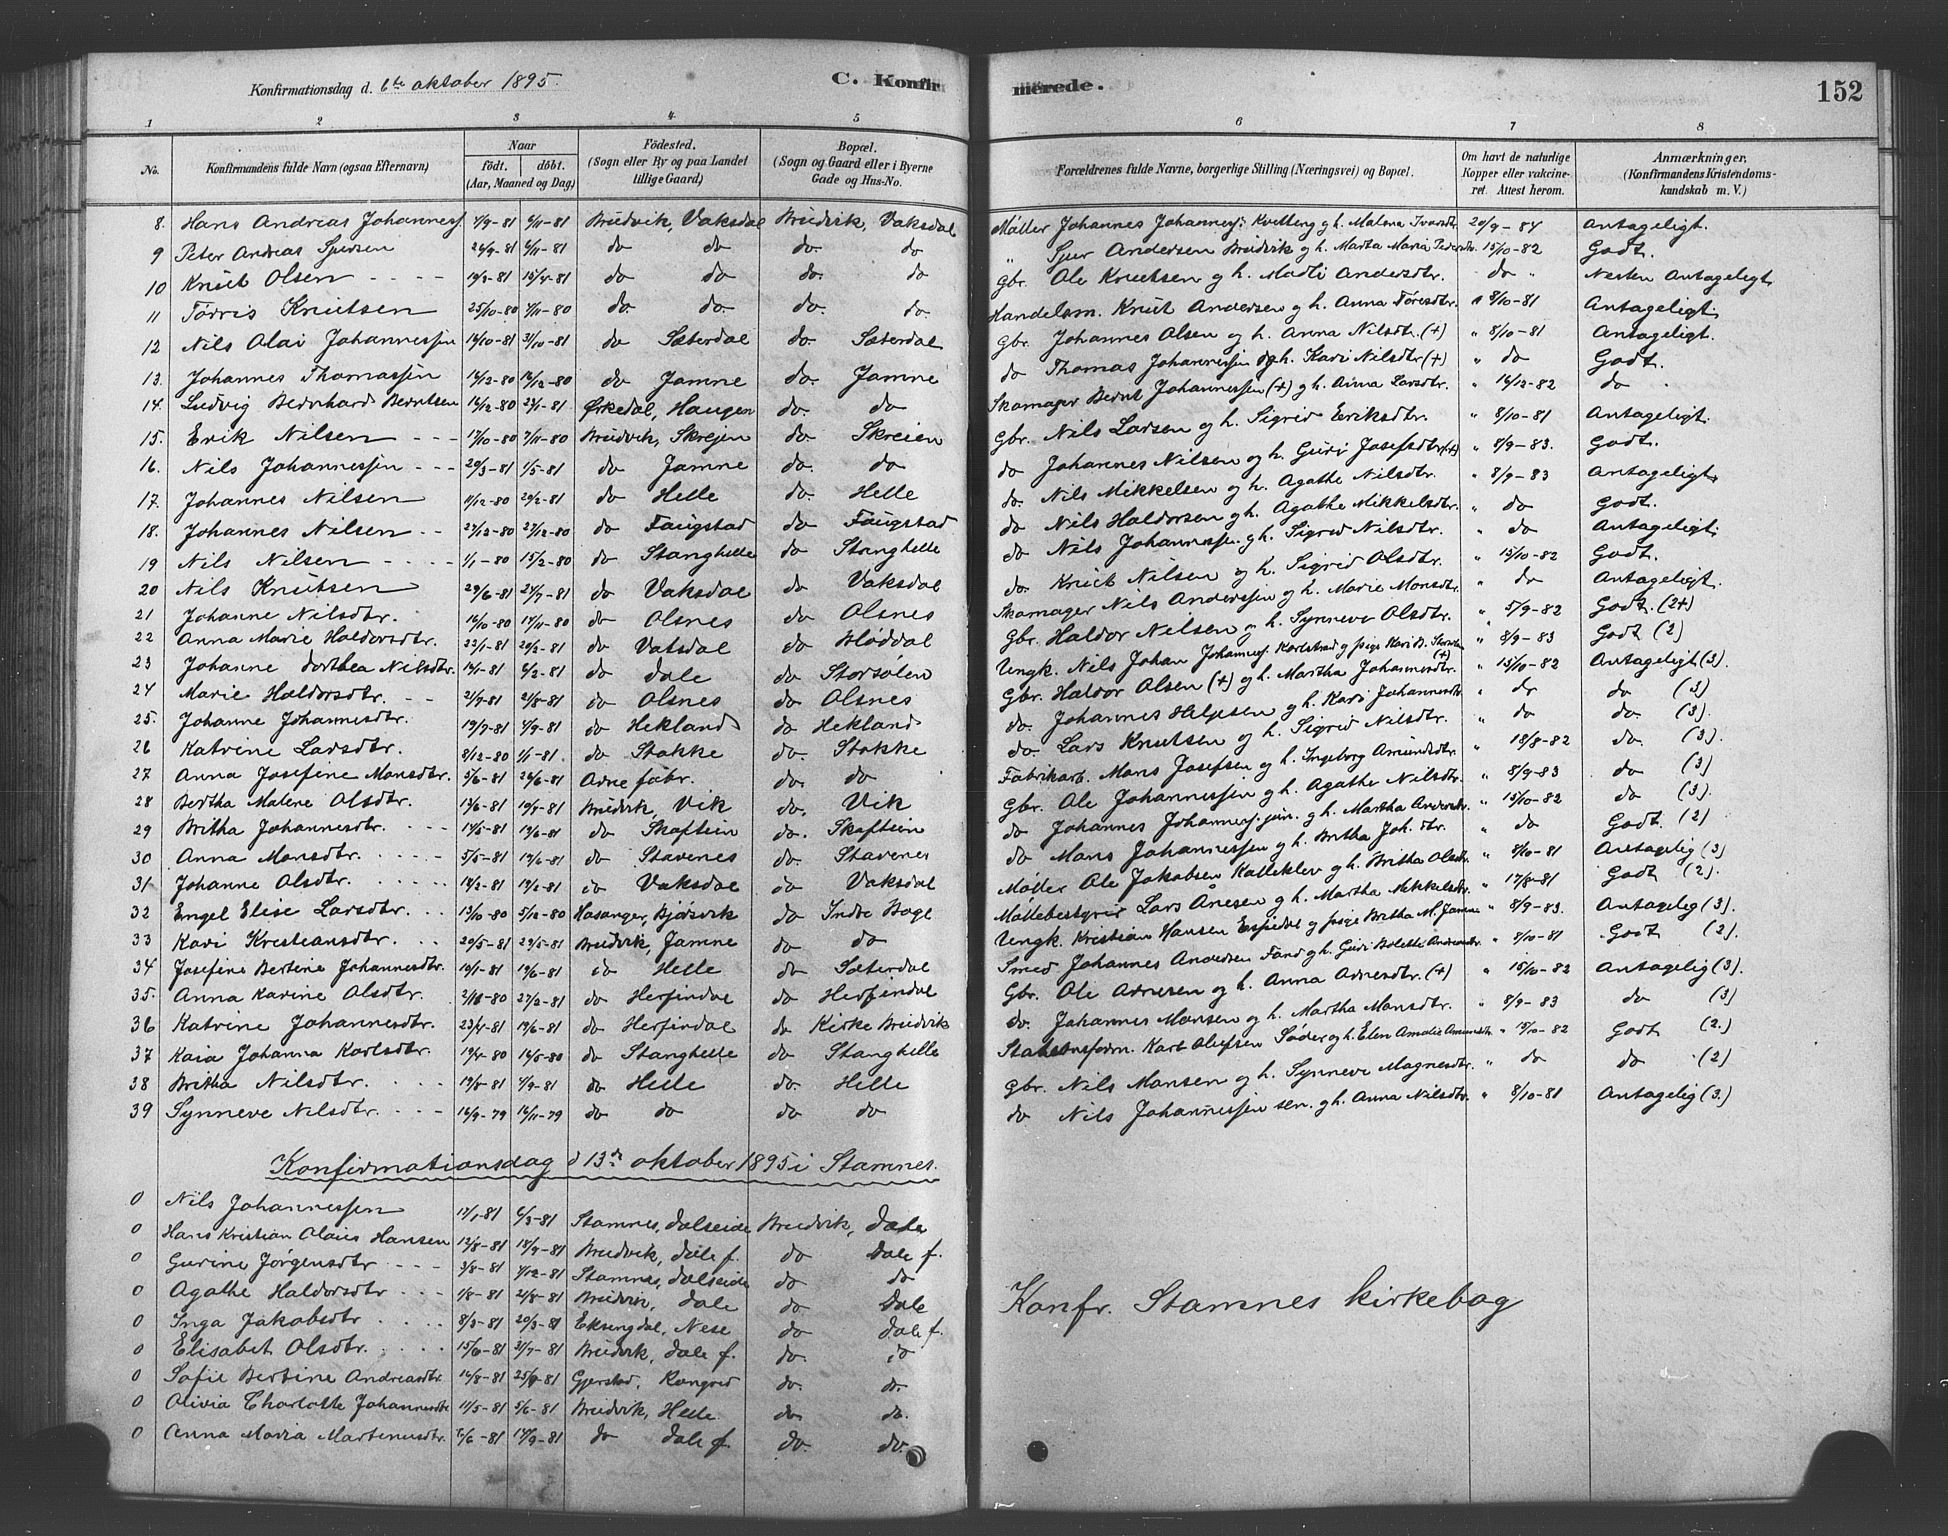 Konfirmationsdag d. 6te oktober 1895.
C. Konfirmerede.
152
1 2 3 4 5 6 7 8
No. Konfirmandens fulde Navn (ogsaa Efternavn) Naar født. døbt. (Aar, Maaned og Dag.) Fødested. (Sogn eller By og paa Landet tillige Gaard) Bopæl. (Sogn og Gaard eller i Byerne Gade og Hus-No. Forældrenes fulde Navne, borgerlige Stilling (Næringsvei) og Bopæl. Om havt de naturlige Kopper eller vakcineret. Attest herom. Anmærkninger. (Konfirmandens Kristendomskundskab m. V.)
8. Hans Andreas Johannessj. 4/9-81 6/11-81 Bruvik, Vaksdal Bruvik, Vaksdal Møller Johannes Johannessj. Kvetteng g h. Malena Ivarsdtr 20/9-84 Antageligt.
9 Peter Andreas Sjursen 24/9-81 6/11-81 do do do do " Sjur Andersen Bruvik g h. Martha Maria Pedersdtr. 15/10-82 Godt.
10 Knut Olsen 19/3-81 15/4-81 do do do. do gbr. Ole Knutsen og h. Madli Andersdtr. do " Nesten Antageligt
11 Torris Knutsen 25/10-80 4/11-80 do. do. do. do. Handelsm. Knut Andersen g h. Anna Toresdtr. " 8/10-81 Antageligt.
12 Nils Olai Johannessen 16/10-81 31/10-81 do Sæterdal do. Sæterdal Gbr. Johannes Olsen g h. Anna Nilsdtr. (+) " 8/10-81 Antageligt.
13. Johannes Thomassen 14/12-80 16/12-80 do Jamne do. Jamne do Thomas Johannessen og h. Kari Nilsdtr (+) " do Godt.
14. Ludvig Bernhard Berntsen 16/12-80 23/1-81 Ørkedal, Haugen do. do Skomager Bernt Johannessen (+) g h. Anna Larsdtr. " 16/12-82 do
15. Erik Nilsen 17/10-80 7/11-80 Bruvik, Skrejen do Skreien Gbr. Nils Larsen g h. Sigrid Eriksdtr. " 8/10-81 Antageligt.
16. Nils Johannessen 20/3-81 1/5-81 do Jamne do. do do Johannes Nilsen og h. Guri Josefsdtr (+) " 8/9-83. Godt.
17. Johannes Nilsen 11/12-80 20/2-81 do Helle do. Helle do. Nils Mikkelsen g h. Agathe Nilsdtr. " 8/9-83 Antageligt.
18. Johannes Nilsen 27/12-80 27/12-80 do Faugstad do Faugstad do Nils Haldorsen g h. Agathe Mikkelsdtr. " do Godt.
19 Nils Nilsen 1/1-80 15/2-80 do Stanghelle do Stanghelle do Nils Johannessen. g h. Sigrid Nilsdtr. " do Antageligt.
20 Nils Knutsen 29/6-81 24/7-81 do Vaksdal do Vaksdal do. Knut Nilsen og h. Sigrid Olsdtr. " 15/10-82 Godt.
21 Johanne Nilsdtr. 16/10-80 14/11-80 do Olsnes do Olsnes Skomager Nils Anderssen g h. Marie Monsdtr. " do Antageligt.
22 Anna Marie Haldorsdtr. 22/1-81 20/2-81 do Vatsdal do Høddal Gbr. Haldor Nilsen g h. Synneve Olsdtr. " 5/9-82 Godt. (2+)
23 Johanne Dorthea Nilsdtr. 14/1-81 6/2-81 do Dale do Storsølen Ungk. Nils Johan Johannessj. Karlstrad g pige Kari D. " 8/9-83 Godt (2)
24 Marie Haldorsdtr. 2/7-81 21/8-81 do Olsnes do Olsnes Gbr. Haldor Olsen (+) g h. Martha Johannesdtr. (+) " 15/10-82 Antageligt (3).
25. Johanne Johannesdtr. 19/7-81 4/9-81 do Hekland do Hekland do. Johannes Helgesen g h. Kari Johannesdtr. " do do (3)
26 Katrine Larsdtr. 8/12-80 1/1-81. do Stokke do. Stokke do Lars Knutsen og h. Sigrid Nilsdtr. " do do (3).
27 Anna Josefine Monsdtr. 5/6-81 26/6-81 Adne fabr. do. do Fabrikarb. Mons Josefsen g h. Ingeborg Amundsdtr. " 18/8-82 do. (3).
28 Bertha Malene Olsdtr. 13/6-81 19/8-81 Bruvik, Vik do. Vik Gbr. Ole Johannessen g h. Agathe Nilsdtr. " 8/9-83 do (3)
29 Britha Johannesdtr. 14/5-81 19/6-81 do Skaftein do. Skaftein do Johannes Johannessj. jun. g h. Martha Andersdtr. " 15/10-82 do (3.)
30 Anna Monsdtr. 5/5-81 19/6-81 do Stavenes do. Stavenes do Mons Johannessen g h. Britha Joh. dtr. " do Godt. (2)
31 Johanne Olsdtr. 14/2-81 19/2-81 do Vaksdal do Vaksdal Møller Ole Jakobsen Kalleklev g h. Britha Olsdtr. " 8/10-81 Antagelig (3)
32 Engel Elise Larsdtr. 13/10-80 5/12-80 Hosanger, Bjørsvik do Indre Boge Møllebestyrer Lars Ånesen g h. Martha Mikkelsdtr. " 17/8-81 Godt (2).
33 Kari Kristiansdtr. 20/5-81 29/5-81 Bruvik, Jamne do do Ungk. Kristian Hansen Espedal g pige Britha M. Jamne " 8/9-83. Antagelig (3).
34 Josefine Bertine Johannesdtr. 19/1-81 19/6-81 do Helle do Sæterdal Smed Johannes Andersen Fand g h. Guri Bolette Andreasdtr. " 8/10-81 Godt (2)
35. Anna Karine Olsdtr. 2/10-80 27/2-81 do Herfindal do Herfindal Gbr. Ole Adnesen g h. Anna Adnesdtr. (+) " 15/10-82 Antagelig (3).
36 Katrine Johannesdtr. 23/4-81 19/6-81 do Herfindal do Kirke Bruvik do. Johannes Monsen g h. Martha Monsdtr. " 8/9-83 do (3)
37 Kaia Johanna Karlsdtr. 19/4-80 16/5-80 do Stanghelle do Stanghelle Stationsform. Karl Olufsen Søder g h. Elen Amalie Amundsdtr. " 15/10-82 Godt (2.)
38 Britha Nilsdtr. 19/8-81 4/9-81 do Helle do. Helle Gbr. Nils Monsen og h. Synneve Magnesdtr. " do do (2)
39 Synneve Nilsdtr. 16/9-79 16/11-79 do do do do do Nils Johannessen sen. g h. Anna Nilsdtr. " 8/10-81 Antagelig (3.)
Konfirmationsdag d 13de oktober 1895 i Stamnes.
0 Nils Johannessen 17/1-81 6/3-81 Stamnes, Dalseide Bruvik, Dale
0 Hans Kristian Olaus Hansen 12/8-81 18/9-81 Bruvik, Dale f. do Dale f.
0 Gurine Jørgensdtr 3/8-81 4/12-81 Stamnes, Dalseide do do
0 Agathe Haldorsdtr 1/8-81 21/8-81 Bruvik, Dale do Dale
0 Inga Jakobsdtr 8/3-81 20/3-81 Eksingdal, Nese do Dale f.
0 Elisabet Olsdtr. 15/6-81 31/7-81 Bruvik, Dale f. do. do
0 Sofie Bertine Andreasdtr. 14/8-81 25/9-81 Gjerstad, do. do.
0 Olivia Charlotte Johannesdtr 11/5-81 5/6-81 Bruvik, Helle do. do.
0 Anna Maria Martinusdtr. 17/9-81 do Dale f. do. do.
Konfr. Stamnes kirkebog